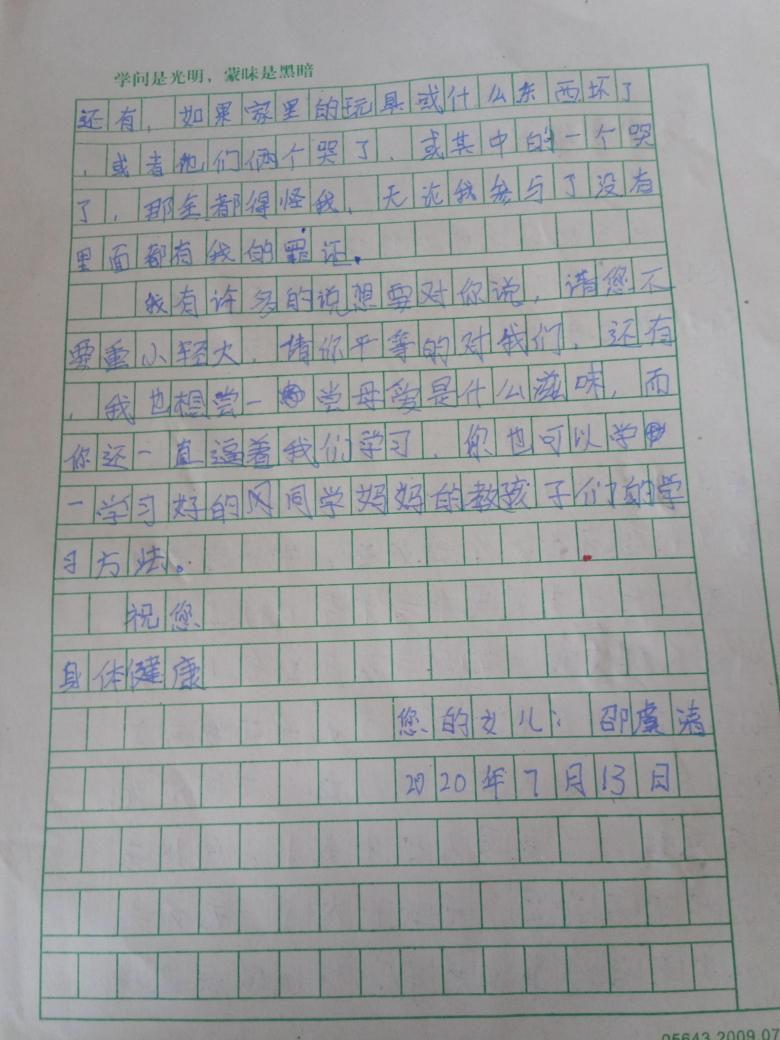 学问是光明，蒙昧是黑暗
还有，如果家里的玩具或什么东西坏了
，或者他们俩个哭了，或其中的一个哭
了，那全都得怪我，无论我参与了没有
里面都有我的罪证。
我有许多的说想要对你说，请您不
要重小轻大，请你平等的对我们，还有
，我也想尝一尝母爱是什么滋味，而
你还一直逼着我们学习，您也可以学
一学习好的同学妈妈的教孩子们的学
习方法。
祝您
身体健康
您的女儿：邵虞清
2020年7月13日
05643.2009.07